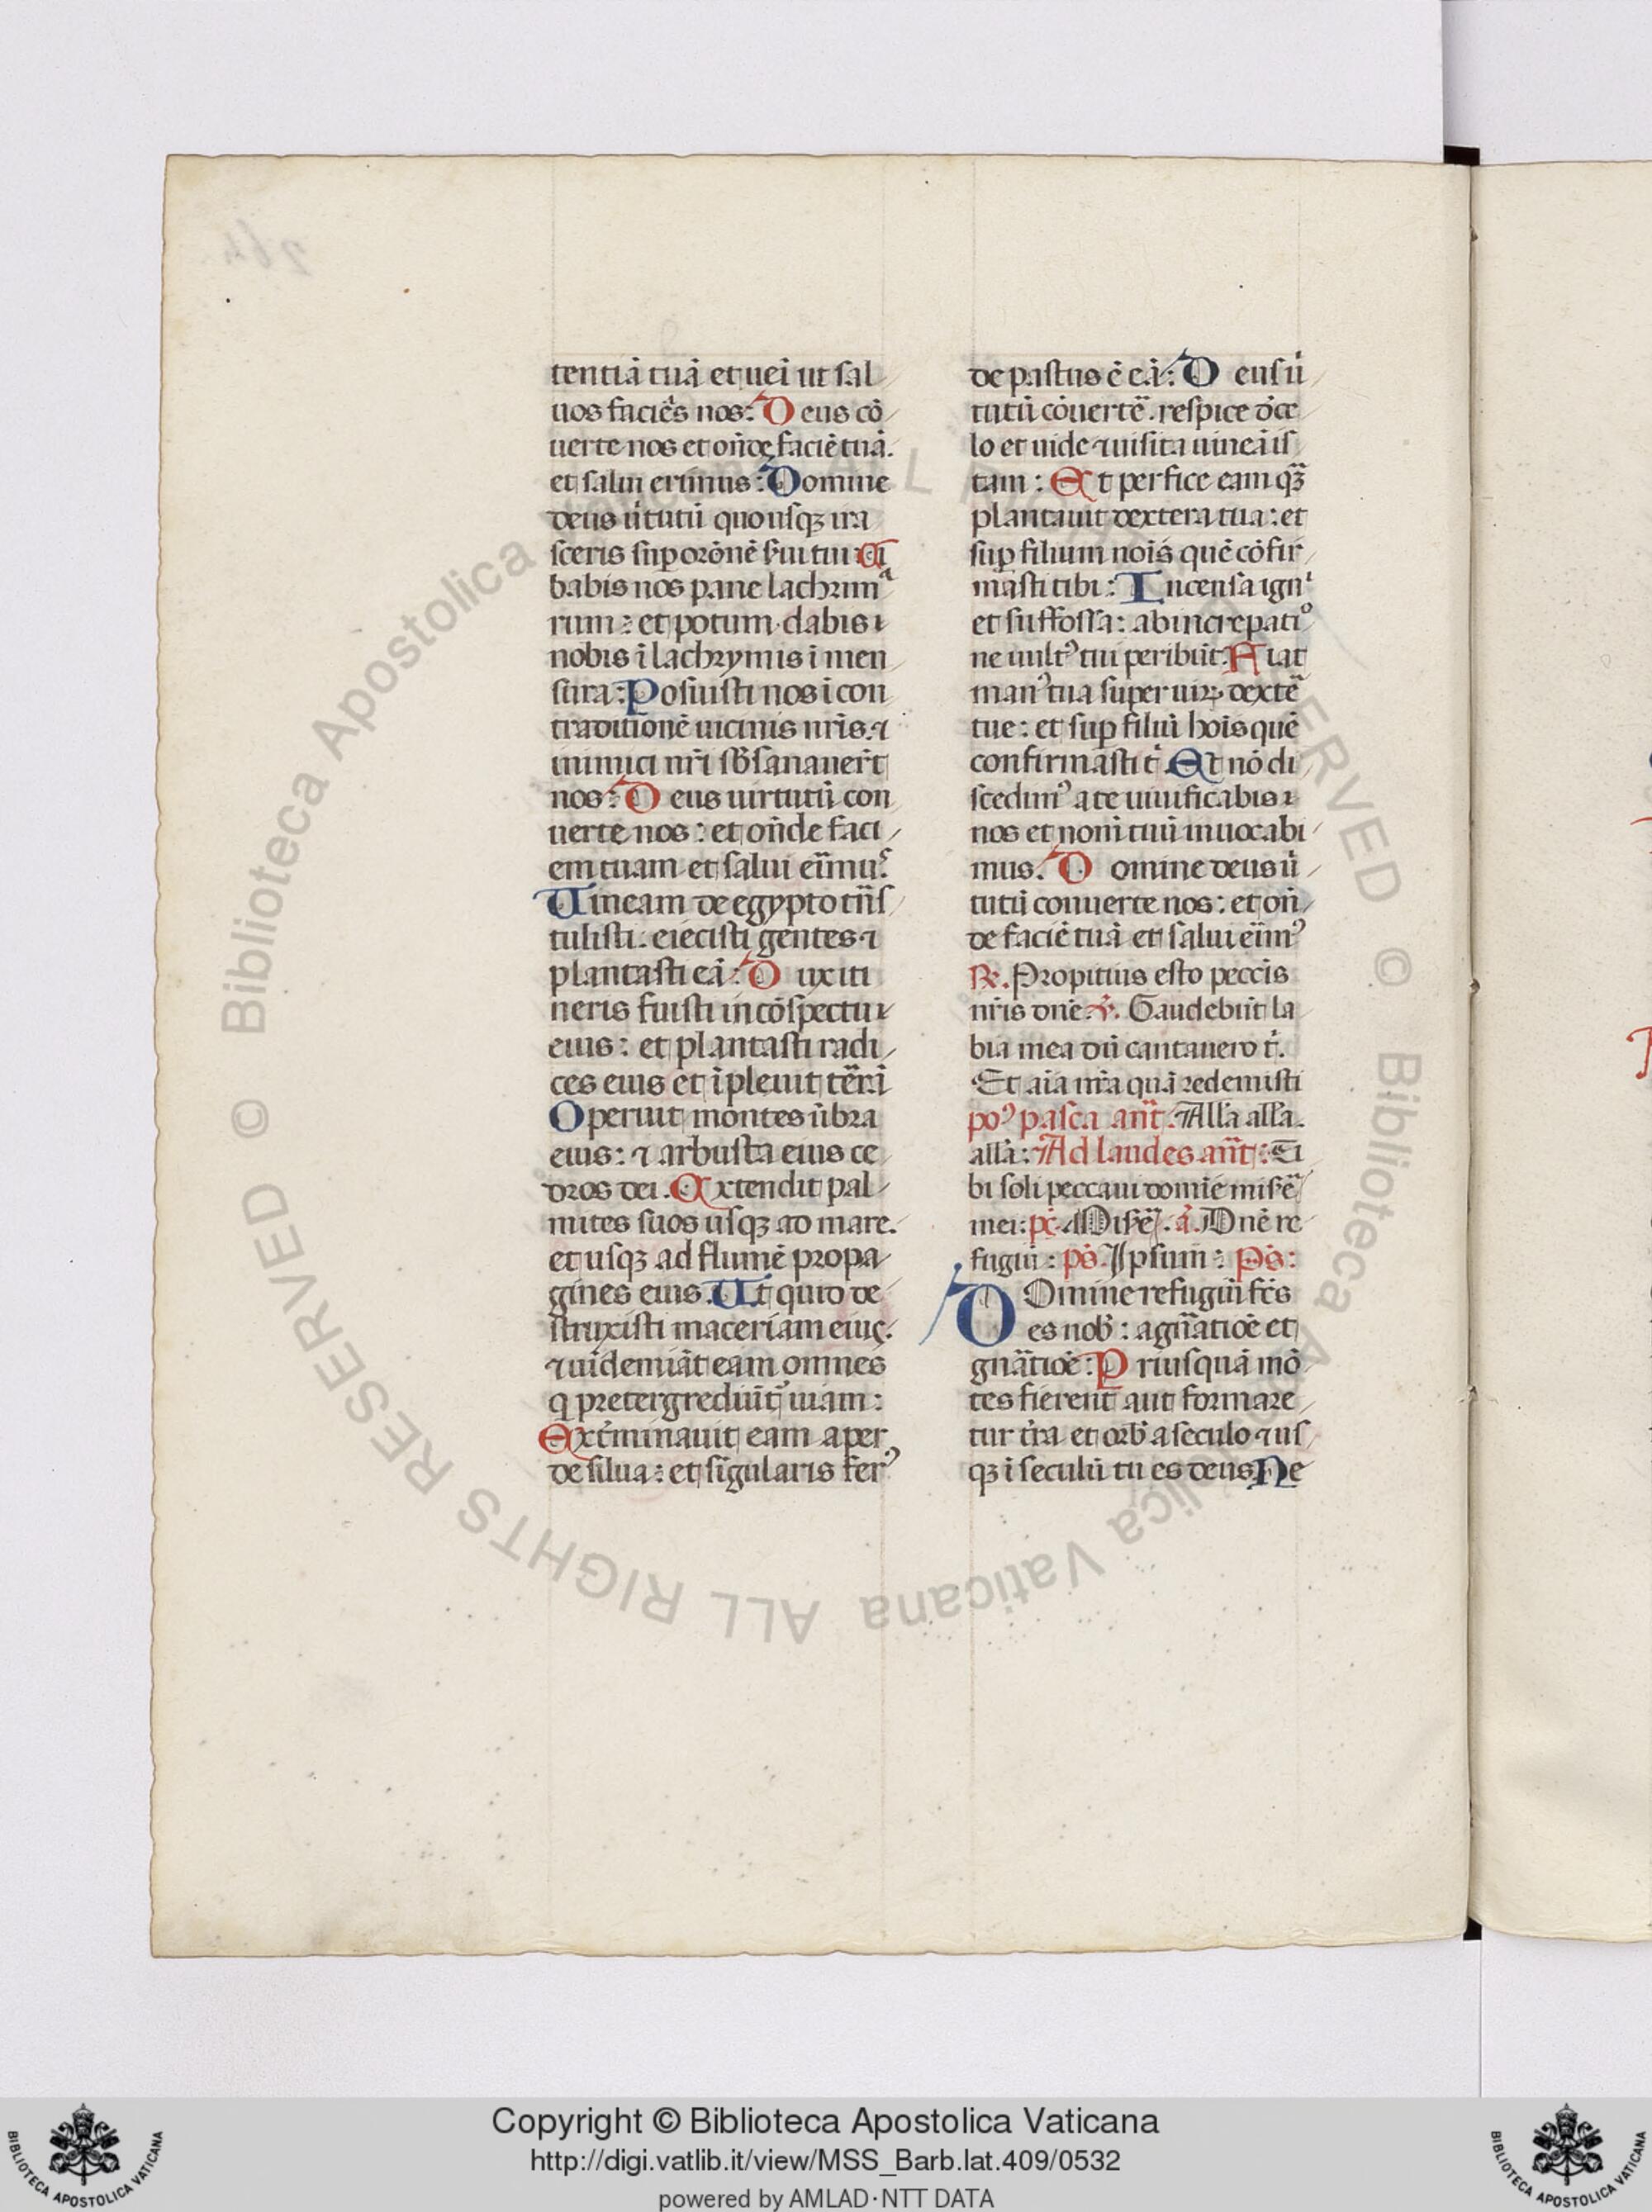 tentiā tuā et uēi ut sal
uos faciēs nos: Deus cō
uerte nos et oñde faciē tuā.
et salui erimus: Domine
deus ūtutū quousqꝫ ira
sceris sup orōnē ẜui tui Ci
babis nos pane lachrimᵃ
rum: et potum dabis
nobis ī lachrymis ī men
sura: Posuisti nos ī con
tradictionē uicinis nr̄is. ⁊
inimici nr̄i sb̄sanauer̄t
nos: Deus uirtutū con
uerte nos: et oñde faci
em tuam et salui eīmus
Uineam de egypto tn̄s
tulisti: eiecisti gentes ⁊
plantasti eā: Dux iti
neris fuisti in cōspectu
eius: et plantasti radi
ces eius et īpleuit tēr̄ā
Operuit montes ūbra
eius: ⁊ arbusta eius ce
dros dei. Extendit pal
mites suos usqꝫ ad mare.
et usqꝫ ad flumē propa
gines eius. Ut quid de
struxisti maceriam eius.
⁊ uīdemiāt eam omnes
q pretergrediūt᷑ uiam:
Ext̄minauit eam aper
de silua: et sīgularis ferꝰ
depastus ē eā: Deus ū
tutū cōuertē. respice d̄ ce
lo et uide ⁊ uisita uineā is
tam: Et perfice eam qꝫ̄
plantauit dextera tua: et
sup filium hoīs quē cōfir
masti tibi: Incensa igni
et suffossa: ab increpatiᵒ
ne uultꝰ tui peribūt. Fiat
manꝰ tua super uiꝝ dextē
tue: et sup filiū hoīs quē
confirmasti t̄ Et nō di
scedimꝰ a te uiuificabis
nos et nom̄ tuū inuocabi
mus. Domine deus ū
tutū conuerte nos: et oñ
de faciē tuā et salui eīmꝰ
℟. Propitius esto peccīs
nr̄is dn̄e. ℣. Gaudebūt la
bia mea dū cantauero t̄.
Et aīa mr̄a quā redemisti
poꝰ pasca an̄t. All̄a all̄a.
all̄a: Ad laudes an̄t: Ti
bi soli peccaui domīe miẜē
mei: ps̄. Miẜē. ā. Dn̄e re
fugiū: ps̄. Ipsum: Ps̄:
DOmine refugiū fc̄s
es nob̄: a gn̄atiōe et
gn̄atiōē: Priusquā mō
tes fierent aut formare
tur tr̄a et orb̄ a seculo ⁊ us
qꝫ ī seculū tu es deus Ne
Copyright © Biblioteca Apostolica Vaticana
http://digi.vatlib.it/view/MSS_Barb.lat.409/0532
powered by AMLAD·NTT DATA